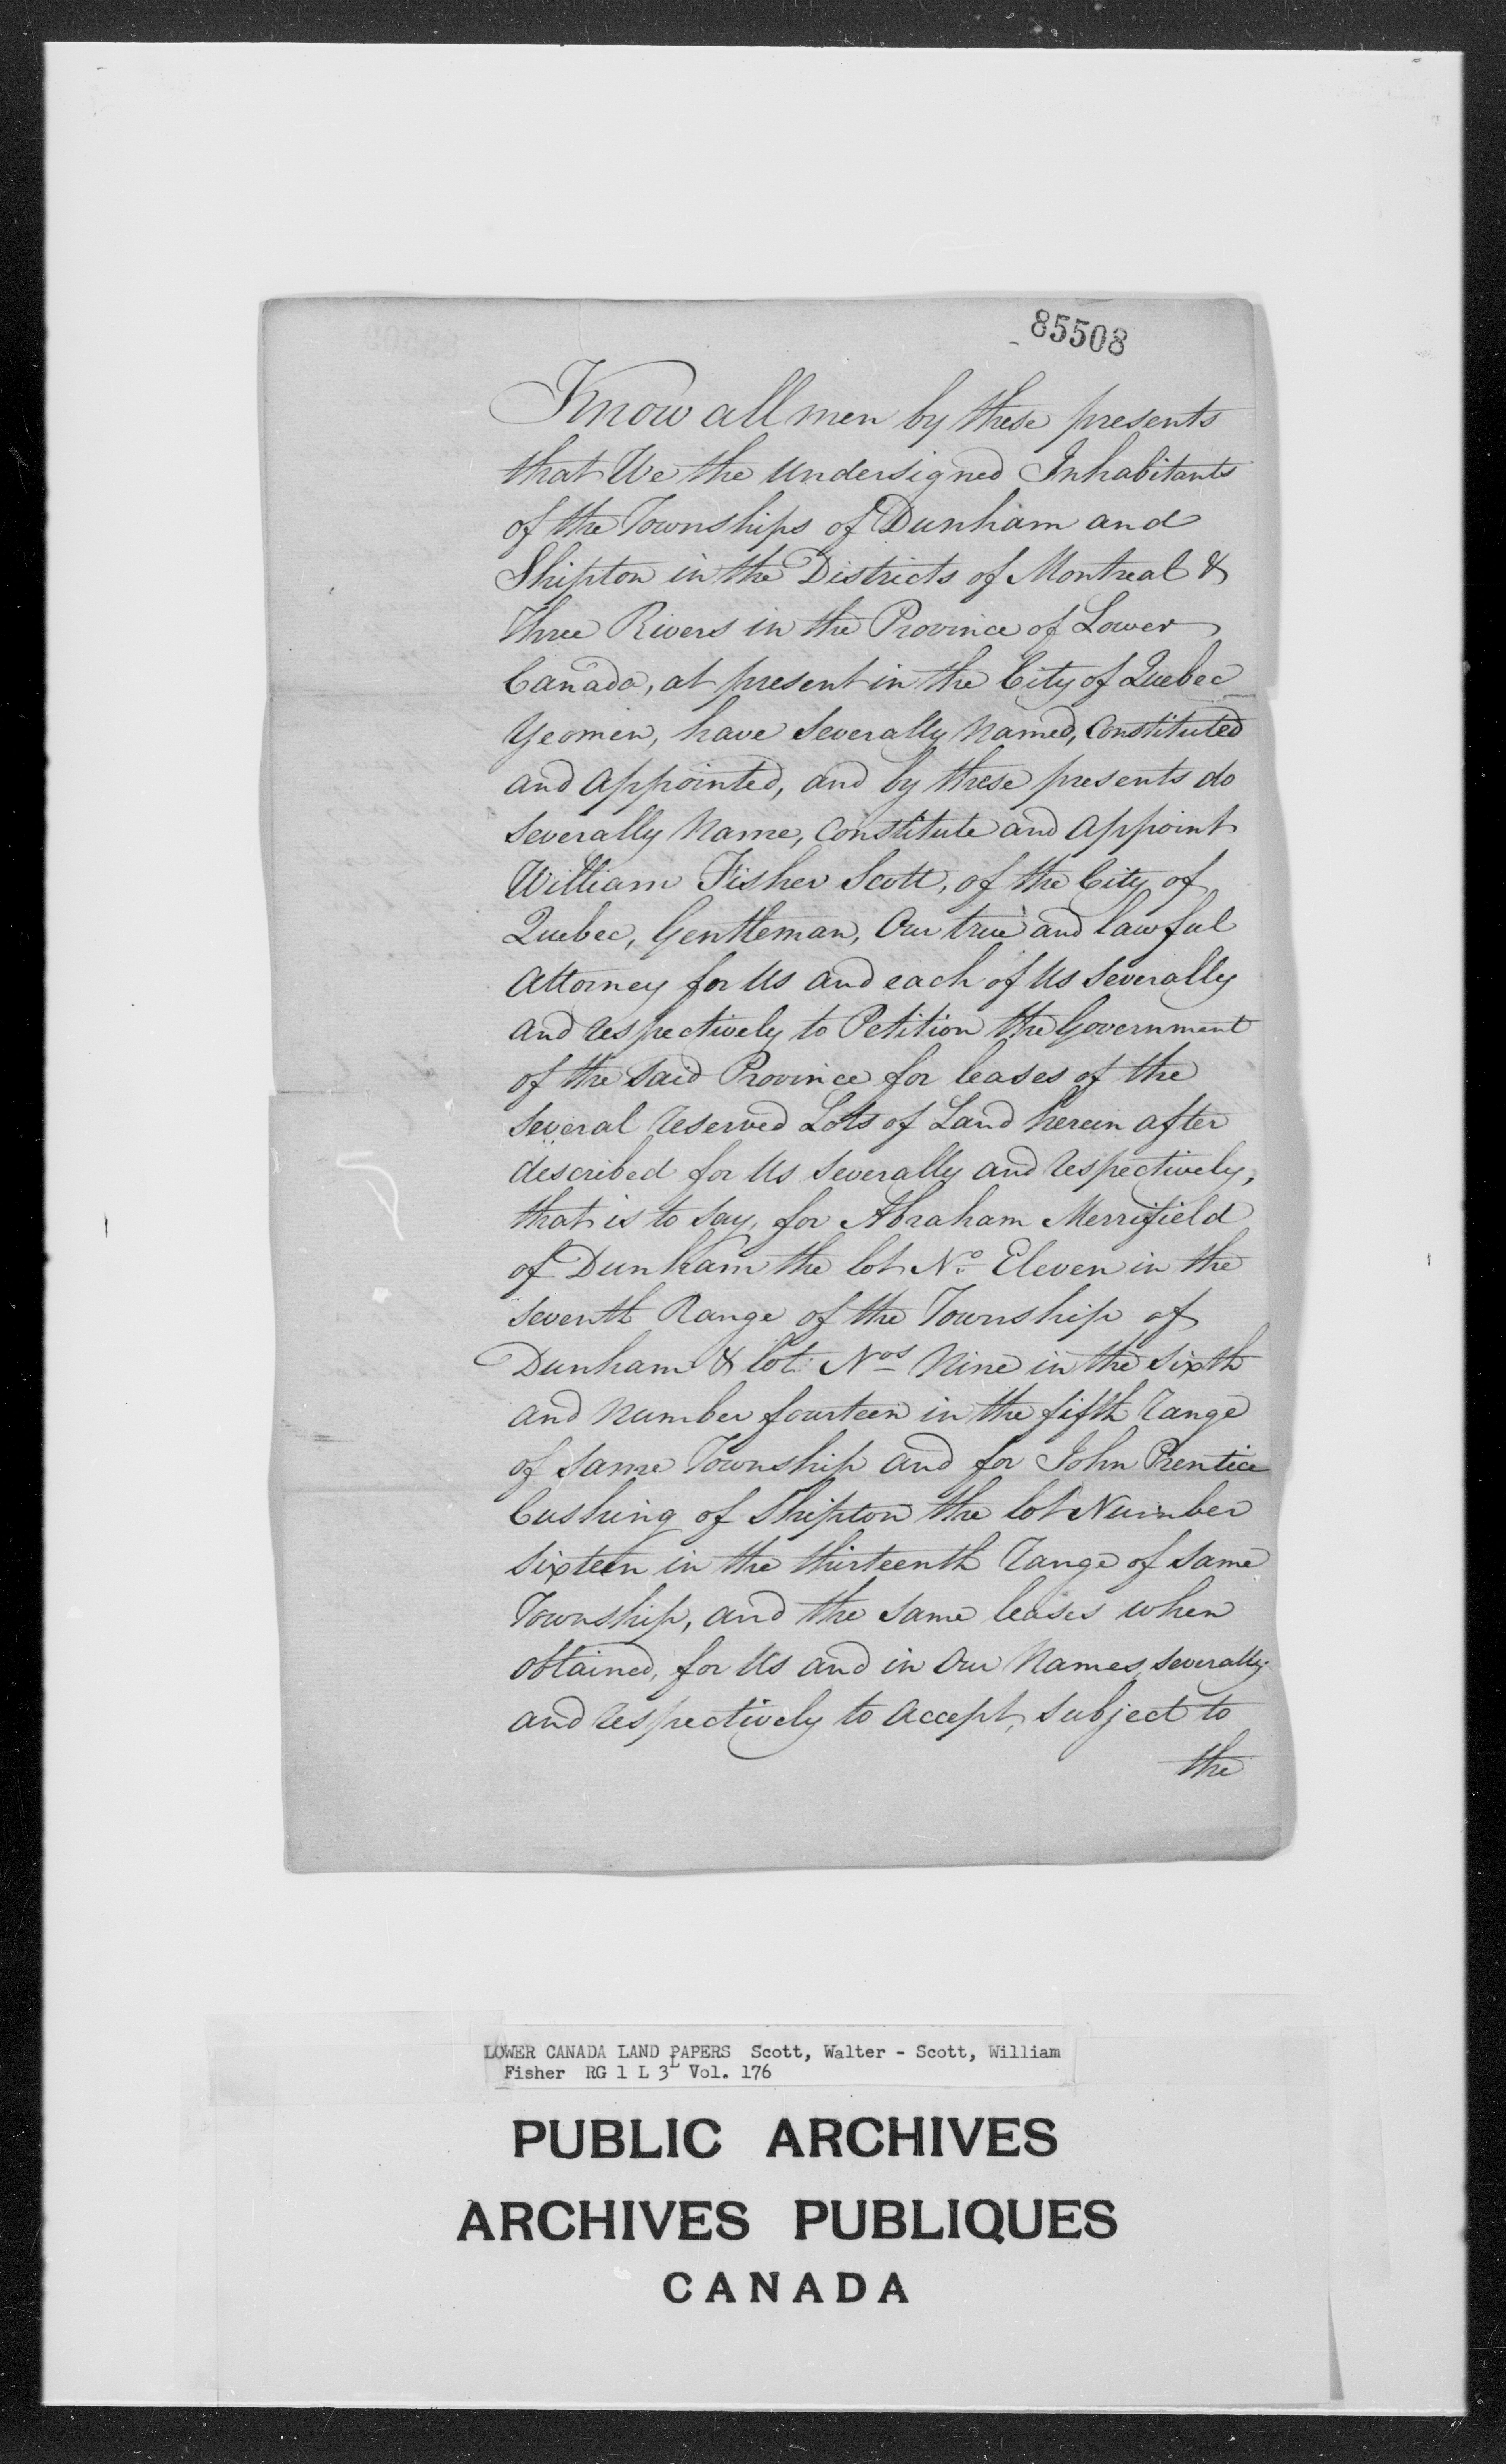 85508
Know all men by these presents
that We the undersigned Inhabitants
of the Townships of Dunham and
Shipton in the Districts of Montreal &
Three Rivers in the Province of Lower
Canada, at present in the City of Quebec
Yeomen, have Severally Named, Constituted
and appointed, and by these presents do
Severally Name, Constitute and Appoint
William Fisher Scott, of the City of
Quebec, Gentleman, Our true and lawful
Attorney for Us and each of Us Severally
and respectively to Petition the Government
of the Said Province for leases of the
Several reserved Lots of Land herein after
described for Us Severally and respectively,
that is to Say, for Abraham Merrifield
of Dunham the lot No. Eleven in the
Seventh Range of the Township of
Dunham & lot Nos Nine in the Sixth
and Number fourteen in the fifth range
of Same Township and for John Prentice
Cushing of Shipton the lot Number
Sixteen in the thirteenth range of Same
Township, and the Same leases when
obtained, for Us and in Our Names, severally
and respectively to accept, subject to
the
LOWER CANADA LAND PAPERS Scott, Walter - Scott, William
Fisher RG 1 L 3L Vol. 176
PUBLIC ARCHIVES
ARCHIVES PUBLIQUES
CANADA